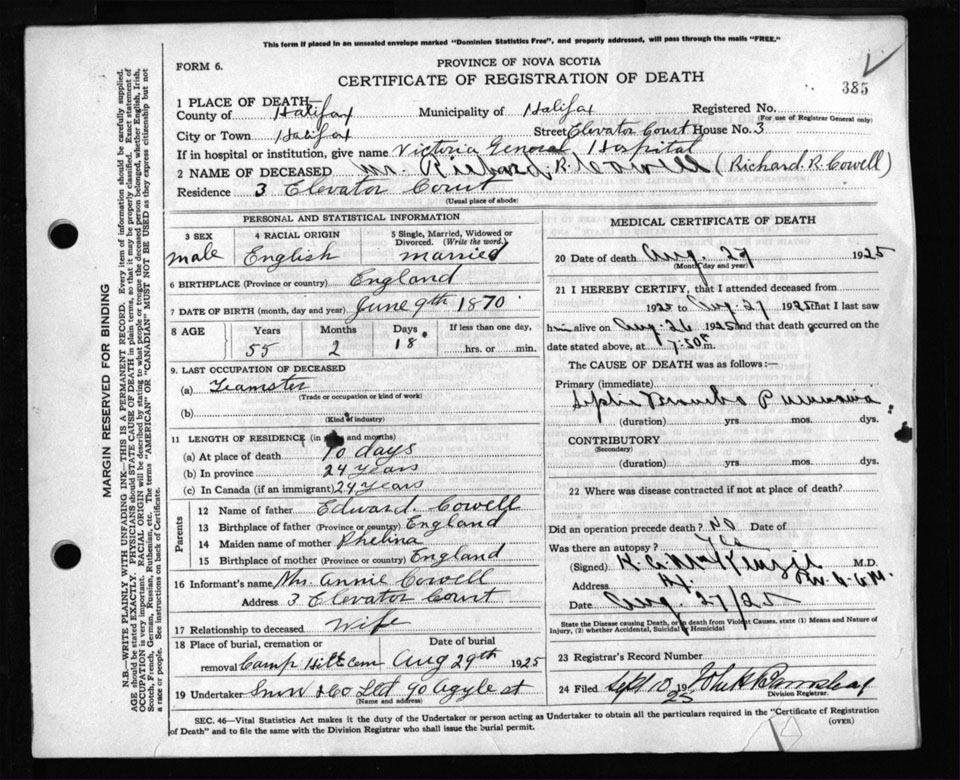 This form if placed in an unsealed envelope marked "Dominion Statistics Free", and properly addressed, will pass through the mails "FREE."
FORM 6.
PROVINCE OF NOVA SCOTIA
CERTIFICATE OF REGISTRATION OF DEATH
385
1 PLACE OF DEATH—
County of Halifax Municipality of Halifax Registered No.
(For use of Registrar General only)
City or Town Halifax Street Elevator Court House No. 3
If in hospital or institution, give name Victoria General Hospital
2 NAME OF DECEASED Mr. Richard R. Cowell (Richard. R. Cowell)
Residence 3 Elevator Court
(Usual place of abode)
PERSONAL AND STATISTICAL INFORMATION
3 SEX 4 RACIAL ORIGIN 5 Single, Married, Widowed or Divorced. (Write the word)
male English married
6 BIRTHPLACE (Province or country) England
7 DATE OF BIRTH (month, day and year) June 9th 1870
8 AGE Years Months Days If less than one day,
55 2 18 hrs. or min.
9. LAST OCCUPATION OF DECEASED
(a) Teamster
(Trade or occupation or kind of work)
(b)
(Kind of industry)
11 LENGTH OF RESIDENCE (in years and months)
(a) At place of death 10 days
(b) In province 24 years
(c) In Canada (if an immigrant) 24 years
Parents
12 Name of father Edward. Cowell
13 Birthplace of father (Province or country) England
14 Maiden name of mother Phelina
15 Birthplace of mother (Province or country) England
16 Informant's name Mrs. Annie Cowell
Address 3 Elevator Court
17 Relationship to deceased Wife
18 Place of burial, cremation or removal Camp Hill Cem Date of burial Aug 29th 1925
19 Undertaker Snow & Co Ltd 90 Argyle st
(Name and address)
MEDICAL CERTIFICATE OF DEATH
20 Date of death Aug. 27 1925
(Month, day and year)
21 I HEREBY CERTIFY, that I attended deceased from
1925 to Aug. 27 1925 that I last saw
him alive on Aug. 26 1925 and that death occurred on
date stated above, at m.
The CAUSE OF DEATH was as follows:—
Primary (immediate)
Septic Broncho Pneumonia
(duration) yrs. mos. dys.
CONTRIBUTORY
(Secondary)
(duration) yrs. mos. dys.
22 Where was disease contracted if not at place of death?
Did an operation precede death? No Date of
Was there an autopsy? Yes
(Signed) M.D.
Address
Date Aug. 27/25
State the Disease causing Death, or in death from Violent Causes, state (1) Means and Nature of
Injury, (2) whether Accidental, Suicidal or Homicidal
23 Registrar's Record Number
24 Filed Sept 10 1925
Division Registrar.
SEC. 46—Vital Statistics Act makes it the duty of the Undertaker or person acting as Undertaker to obtain all the particulars required in the "Certificate of Registration
of Death" and to file the same with the Division Registrar who shall issue the burial permit.
(OVER)
MARGIN RESERVED FOR BINDING
N.B.—WRITE PLAINLY WITH UNFADING INK—THIS IS A PERMANENT RECORD. Every item of information should be carefully supplied.
AGE should be stated EXACTLY. PHYSICIANS should STATE CAUSE OF DEATH in plain terms, so that it may be properly classified. Exact statement of
OCCUPATION is very important. RACIAL ORIGIN will be described by stating to what people or tongue the deceased person belonged, whether English, Irish,
Scotch, French, German, Russian, Ruthenian, etc. The terms "AMERICAN" OR "CANADIAN" MUST NOT BE USED as they express citizenship but not
a race or people. See instructions on back of Certificate.